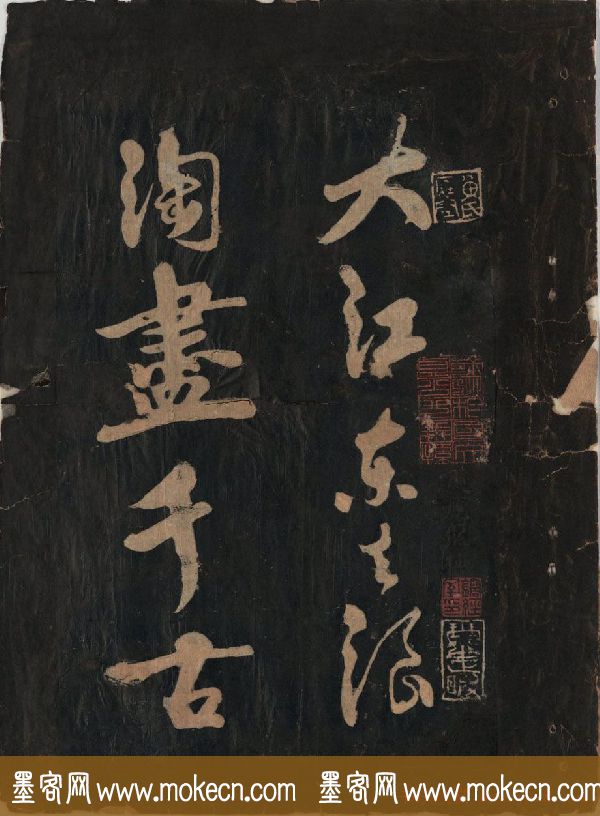 大江东去浪
淘盡千古
墨客网 www.mokecn.com 墨客网 www.mokecn.com